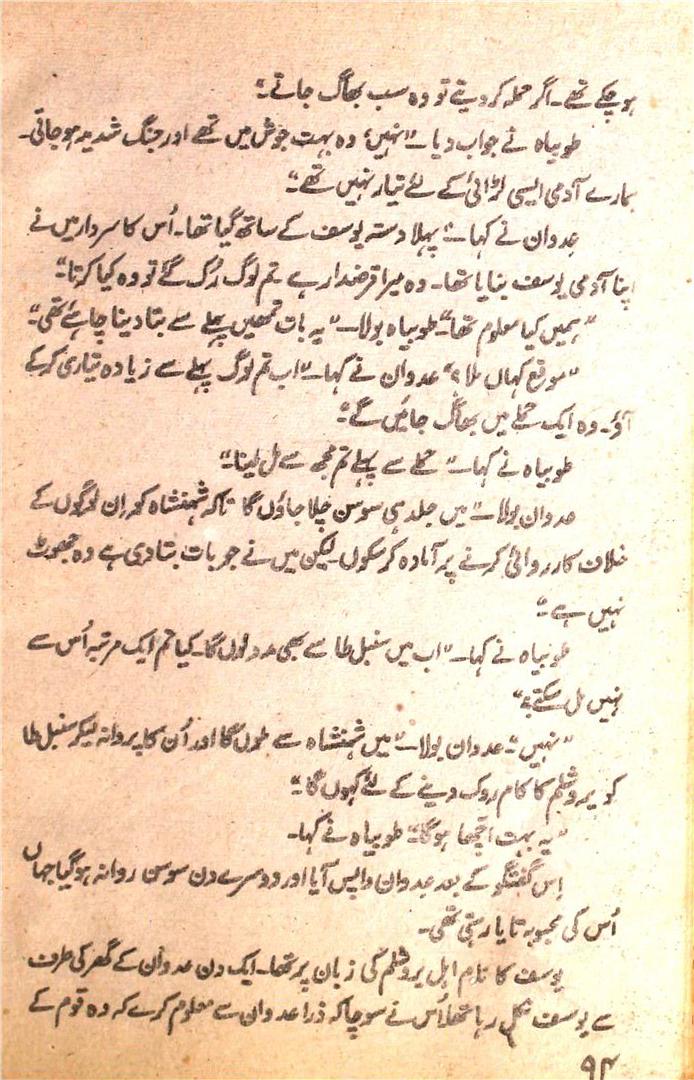 ہو چکے تھے۔ اگر حملہ کر دیتے تو وہ سب بھاگ جاتے۔"
طوبیاہ نے جواب دیا۔ "نہیں، وہ بہت جوش میں تھے اور جنگ شدید ہو جاتی۔
ہمارے آدمی ایسی لڑائی کے لئے تیار نہیں تھے۔"
عدوان نے کہا۔ "پہلا دستہ یوسف کے ساتھ گیا تھا۔ اُس کا سردار میں نے
اپنا آدمی یوسف بنایا تھا۔ وہ میرا قرضدار ہے۔ تم لوگ رُک گئے تو وہ کیا کرتا۔"
"ہمیں کیا معلوم تھا۔" طوبیاہ بولا۔ "یہ بات تمھیں پہلے سے بتا دینا چاہئے تھی۔"
"موقع کہاں ملا؟" عدوان نے کہا۔ "اب تم لوگ پہلے سے زیادہ تیاری کر کے
آؤ۔ وہ ایک حملے میں بھاگ جائیں گے۔"
طوبیاہ نے کہا۔ "حملے سے پہلے تم مجھ سے مل لینا۔"
عدوان بولا۔ "میں جلد ہی سوسن چلا جاؤں گا تاکہ شہنشاہ کو اِن لوگوں کے
خلاف کارروائی کرنے پر آمادہ کر سکوں۔ لیکن میں نے جو بات بتا دی ہے وہ جھوٹ
نہیں ہے۔"
طوبیاہ نے کہا۔ "اب میں سنبل طا سے بھی مدد لوں گا۔ کیا تم ایک مرتبہ اُس سے
نہیں مل سکتے؟"
"نہیں"۔ عدوان بولا۔ "میں شہنشاہ سے ملوں گا اور اُن کا پروانہ لیکر سنبل طا
کو یروشلم کا کام روک دینے کے لئے کہوں گا۔"
"یہ بہت اچھا ہو گا۔" طوبیاہ نے کہا۔
اِس گفتگو کے بعد عدوان واپس آیا اور دوسرے دن سوسن روانہ ہو گیا جہاں
اُس کی محبوبہ تایا رہتی تھی۔
یوسف کا نام اہل یروشلم کی زبان پر تھا۔ ایک دن عدوان کے گھر کی طرف
سے یوسف نکل رہا تھا اُس نے سوچا کہ ذرا عدوان سے معلوم کرے کہ وہ قوم کے
۹۴